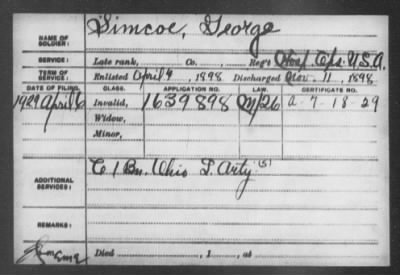 NAME OF SOLDIER: Simcoe, George
SERVICE: Late rank, Co. Reg't Hosp. Cps. U.S.A.
TERM OF SERVICE: Enlisted April 9, 1898 Discharged Nov. 11, 1898
DATE OF FILING. CLASS. APPLICATION NO. LAW. CERTIFICATE NO.
1929 April 6 Invalid, 1639898 M/26 a-7-18-29
Widow,
Minor,
ADDITIONAL SERVICES: C 1 Bn. Ohio L. Arty (S)
REMARKS:
Died , 1 , at